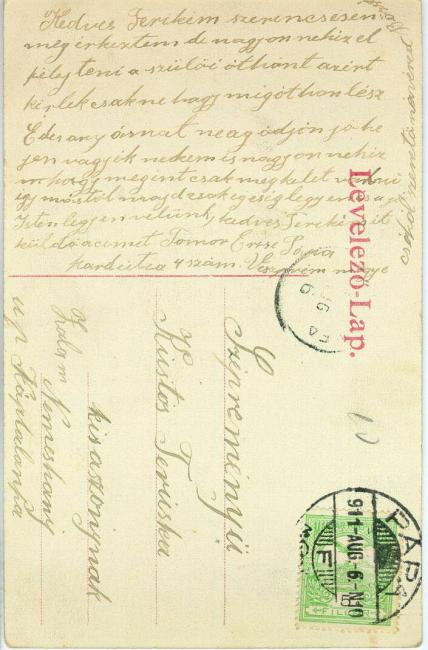 Kedves Terikém szerencsésen
megérkeztem de nagyon nehiz el
félejteni a szülői óthónt azért
kérlek csak ne hagy mig óthon lész
Édes any ásmat ne agódjón jó he
jen vagyik nekem is nagyon nehiz
hogy megint csak meg kelet
igy mostól majd csak egéség legyen
Isten legjen vélünk, kedves Terike itt
küldó a cimet Tomor Erzse Pápa
utca 4 szám. Veszprém megye
csókol szerető növéred
Levelező-Lap.
Szépreményü
Kustos Teruska
kisasszonynak
Zalam
Nemeshany
u p Káptalanfa
PÁPA
911-AUG-6-N10
FILLÉR